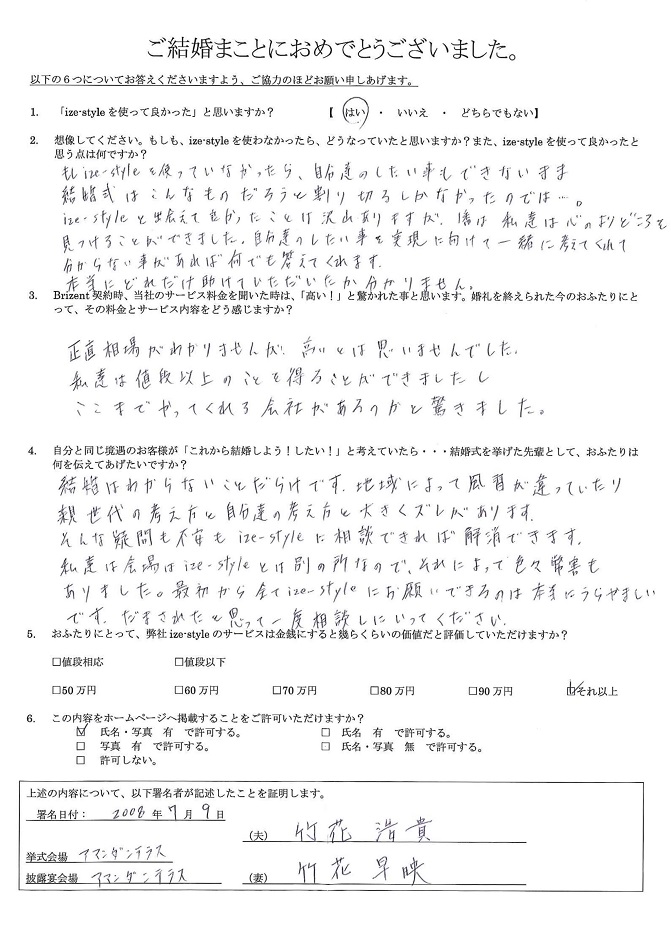 ご結婚まことにおめでとうございました。
以下の6つについてお答えくださいますよう、ご協力のほどお願い申しあげます。
1. 「ize-styleを使って良かった」と思いますか? 【 はい ・ いいえ ・ どちらでもない】
2. 想像してください。もしも、ize-styleを使わなかったら、どうなっていたと思いますか?また、ize-styleを使って良かったと
思う点は何ですか?
もしize-styleを使っていなかったら、自分達のしたい事もできないまま
結婚式はこんなものだろうと割り切るしかなかったのでは…。
ize-styleと出会えて良かったことは沢山ありますが、1番は私達は心のよりどころを
見つけることができました。自分達のしたい事を実現に向けて一緒に考えてくれて
分からない事があれば何でも答えてくれます。
本当にどれだけ助けていただいたか分かりません。
3. Brizent契約時、当社のサービス料金を聞いた時は、「高い!」と驚かれた事と思います。婚礼を終えられた今のおふたりにと
って、その料金とサービス内容をどう感じますか?
正直相場がわかりませんが、高いとは思いませんでした。
私達は値段以上のことを得ることができましたし
ここまでやってくれる会社があるのかと驚きました。
4. 自分と同じ境遇のお客様が「これから結婚しよう!したい!」と考えていたら・・・結婚式を挙げた先輩として、おふたりは
何を伝えてあげたいですか?
結婚はわからないことだらけです。地域によって風習が違っていたり
親世代の考え方と自分達の考え方と大きくズレがあります。
そんな疑問も不安もize-styleに相談できれば解消できます。
私達は会場はize-styleとは別の所なので、それによって色々弊害も
ありました。最初から全てize-styleにお願いできるのは本当にうらやましい
です。だまされたと思って一度相談しにいってください。
5. おふたりにとって、弊社ize-styleのサービスは金銭にすると幾らくらいの価値だと評価していただけますか?
□値段相応 □値段以下
□50万円 □60万円 □70万円 □80万円 □90万円 ☑それ以上
6. この内容をホームページへ掲載することをご許可いただけますか?
☑ 氏名・写真 有 で許可する。 □ 氏名 有 で許可する。
□ 写真 有 で許可する。 □ 氏名・写真 無 で許可する。
□ 許可しない。
上述の内容について、以下署名者が記述したことを証明します。
署名日付: 2008年7月9日
(夫) 竹花 浩貴
挙式会場 アマンダンテラス
披露宴会場 アマンダンテラス (妻) 竹花 早映